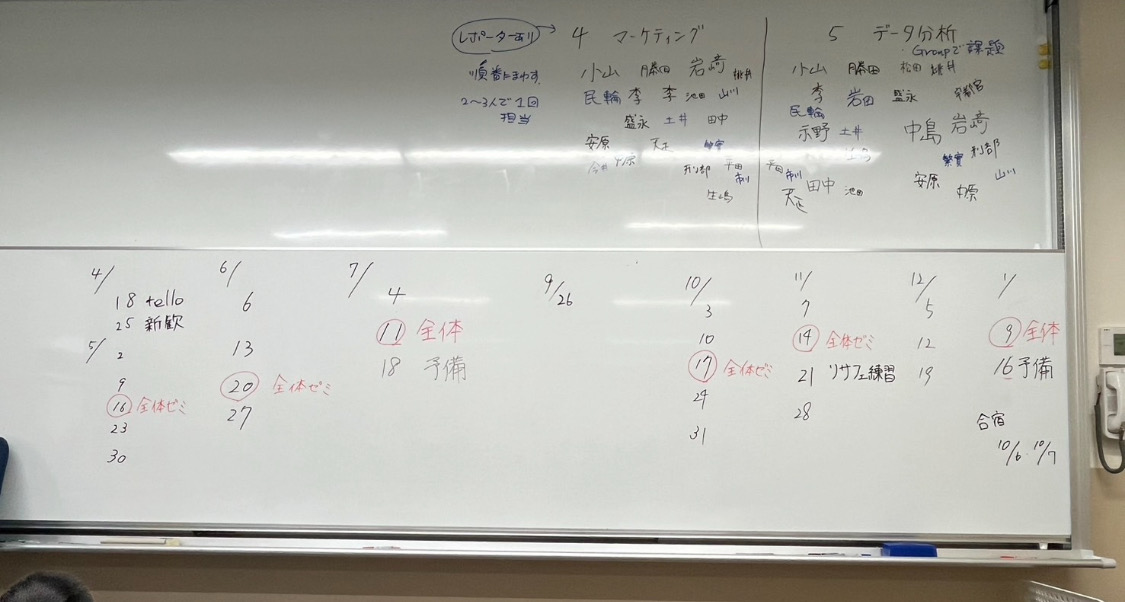 レポーターあり → 4 マーケティング
順番にまわす。
2〜3人で1回
担当
小山 藤田 岩崎 桃井
民輪 李 李 池田 山川
盛永 土井 田中
安原 天正 繁實
今井 中原 刑部 平田
市川
生嶋
5 データ分析
・Groupで課題
小山 藤田 松田 桃井
李 岩田 盛永
民輪
示野 土井 中島 岩崎
繁實 刑部
平田 市川 安原 中原 山川
天正 田中 池田
4/
18 hello
25 新歓
5/ 2
9
16 全体ゼミ
23
30
6/
6
13
20 全体ゼミ
27
7/
4
11 全体
18 予備
9/26
10/
3
10
17 全体ゼミ
24
31
11/
7
14 全体ゼミ
21 リサフェ練習
28
12/
5
12
19
1/
9 全体
16 予備
合宿
10/6・10/7